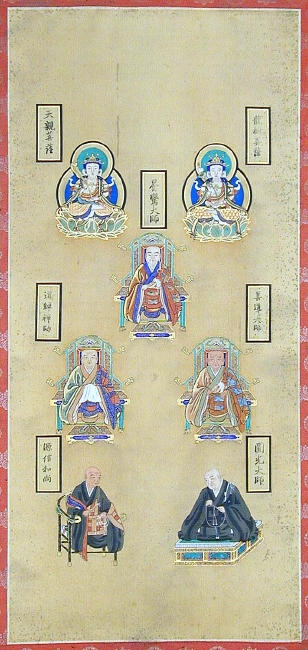 龍樹菩薩
天親菩薩
曇鸞大師
善導大師
道綽禅師
圓光大師
源信和尚